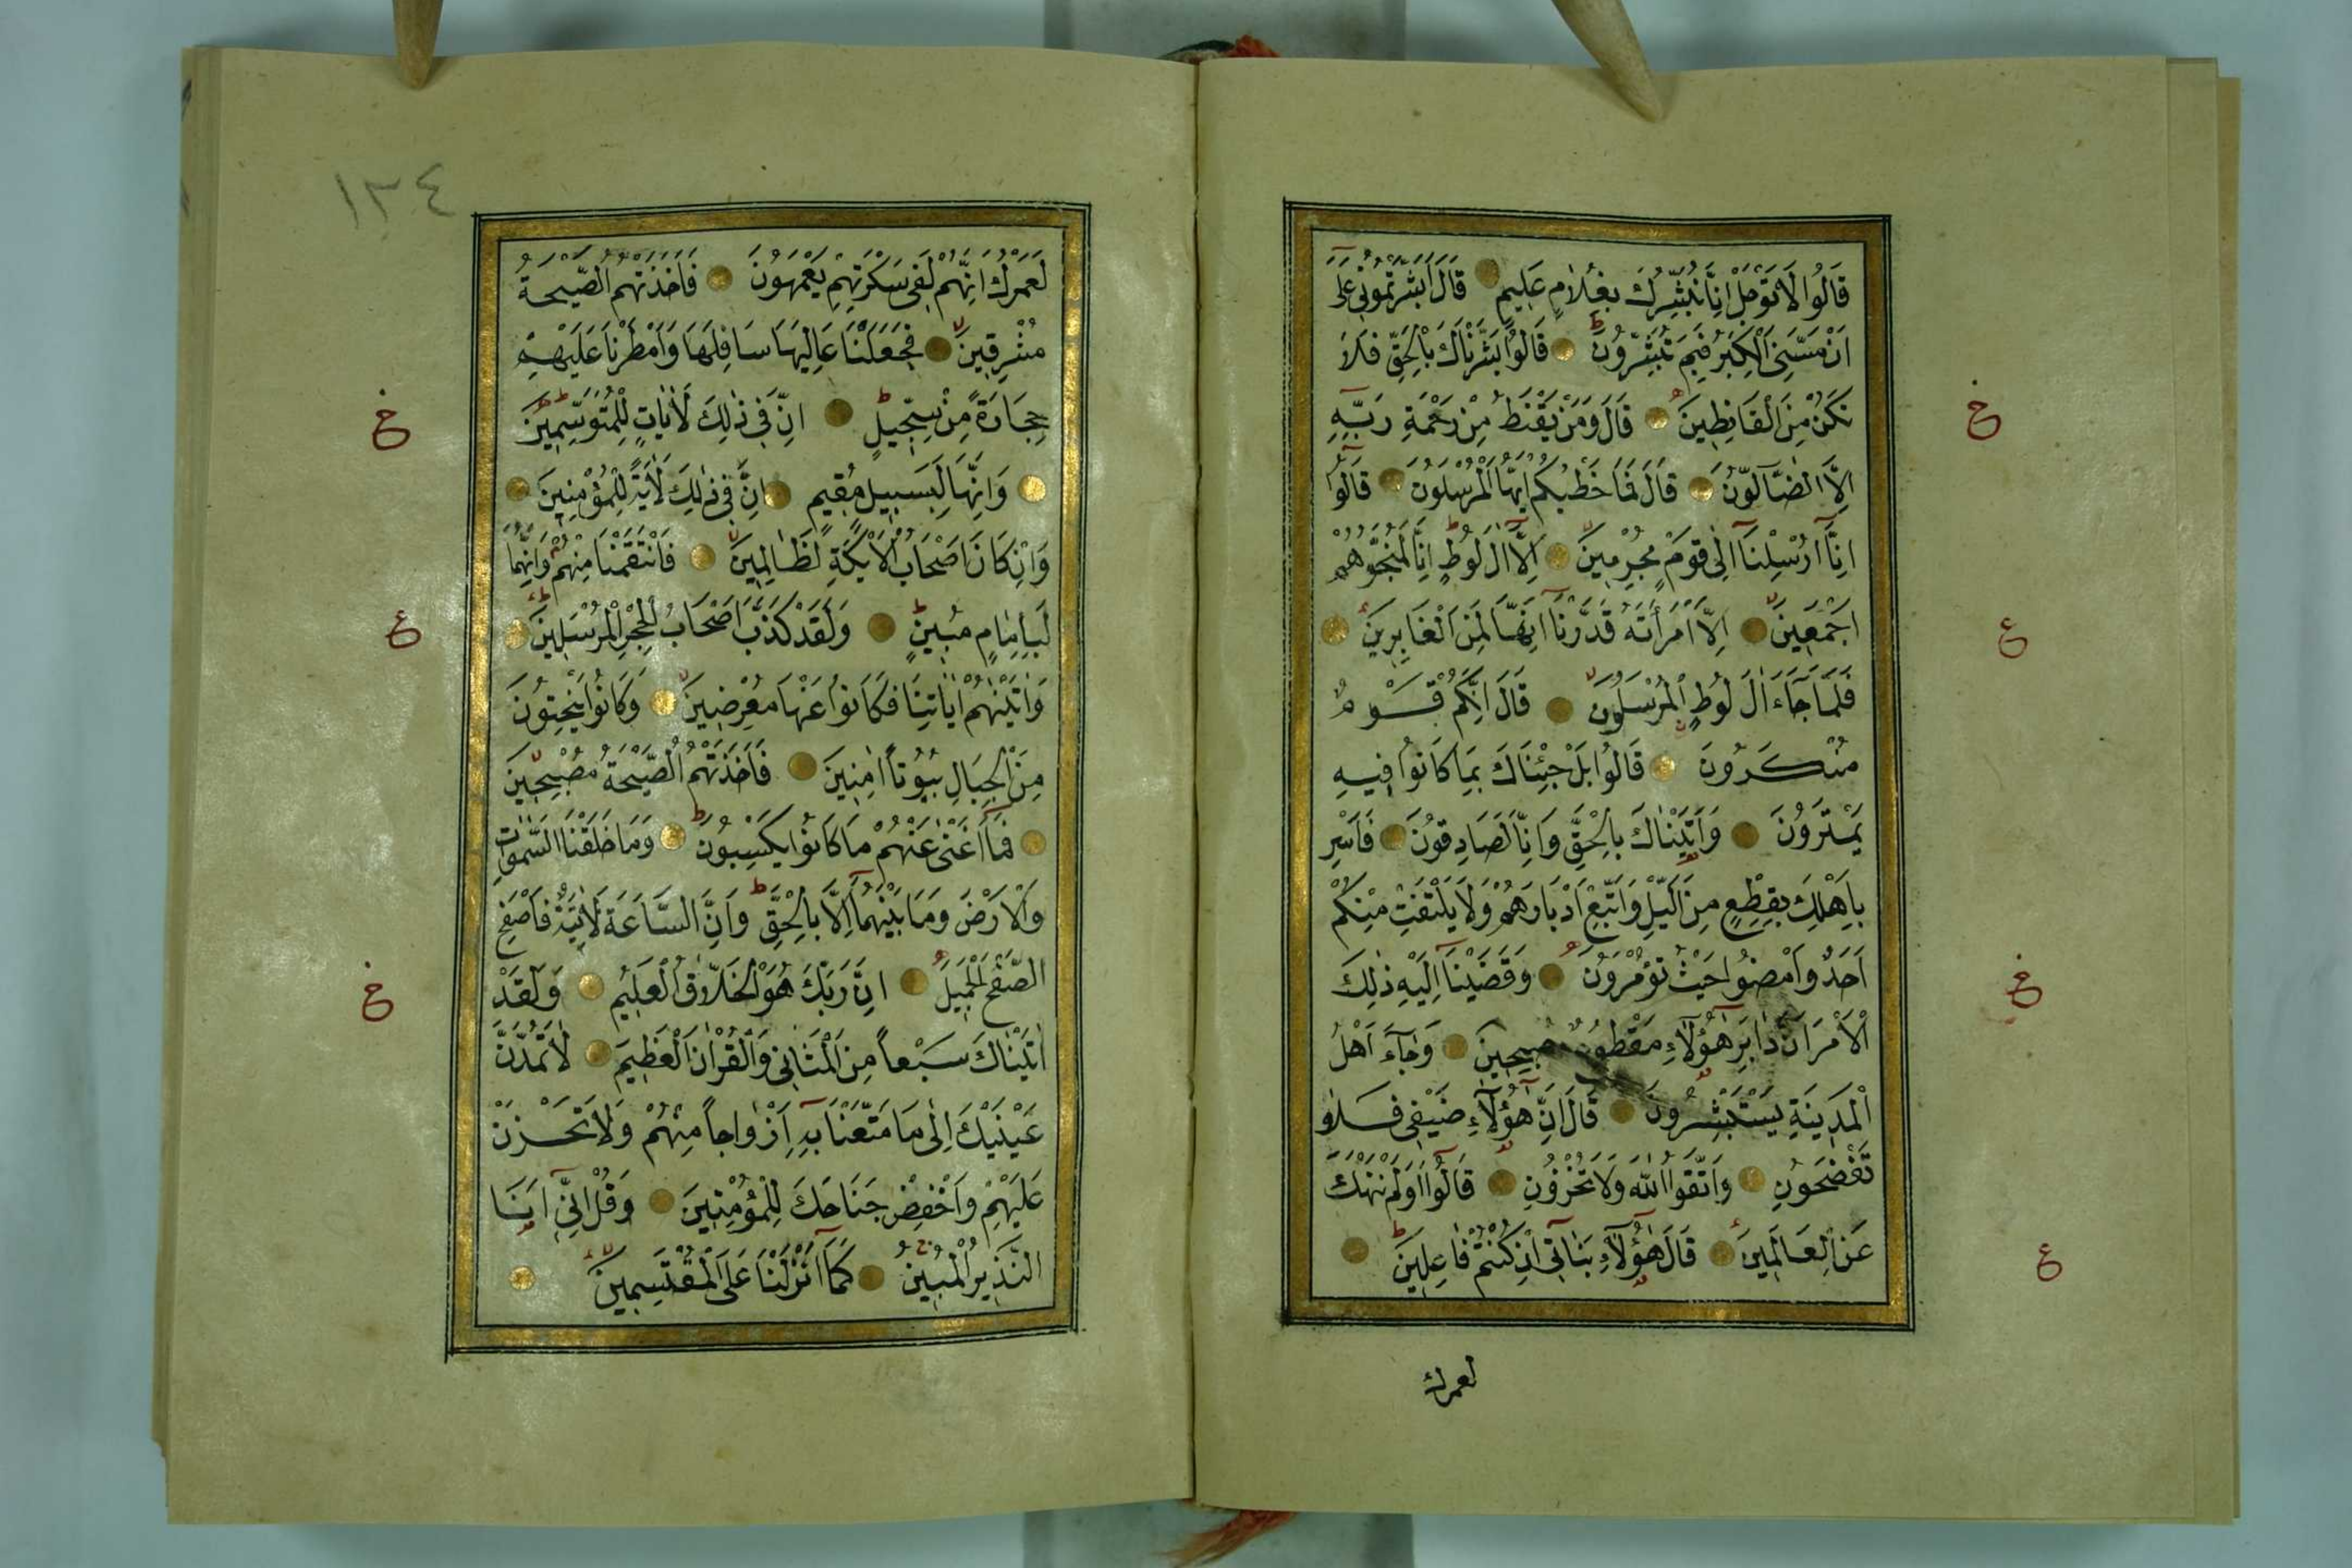 قَالُوا لَا تَوْجَلْ اِنَّا نُبَشِّرُكَ بِغُلَامٍ عَلِيمٍ قَالَ اَبَشَّرْتُمُونِي عَلٰٓى
اَنْ مَسَّنِيَ الْكِبَرُ فَبِمَ تُبَشِّرُونَ قَالُوا بَشَّرْنَاكَ بِالْحَقِّ فَلَا
تَكُنْ مِنَ الْقَانِطِينَ قَالَ وَمَنْ يَقْنَطُ مِنْ رَحْمَةِ رَبِّهِٓ
اِلَّا الضَّٓالُّونَ قَالَ فَمَا خَطْبُكُمْ اَيُّهَا الْمُرْسَلُونَ قَالُٓوا
اِنَّٓا اُرْسِلْنَٓا اِلٰى قَوْمٍ مُجْرِمِينَ اِلَّٓا اٰلَ لُوطٍ اِنَّا لَمُنَجُّوهُمْ
اَجْمَعِينَ اِلَّا امْرَاَتَهُ قَدَّرْنَٓا اِنَّهَا لَمِنَ الْغَابِرِينَ
فَلَمَّا جَٓاءَ اٰلَ لُوطٍ الْمُرْسَلُونَ قَالَ اِنَّكُمْ قَوْمٌ
مُنْكَرُونَ قَالُوا بَلْ جِئْنَاكَ بِمَا كَانُوا فِيهِ
يَمْتَرُونَ وَاَتَيْنَاكَ بِالْحَقِّ وَاِنَّا لَصَادِقُونَ فَاَسْرِ
بِاَهْلِكَ بِقِطْعٍ مِنَ الَّيْلِ وَاتَّبِعْ اَدْبَارَهُمْ وَلَا يَلْتَفِتْ مِنْكُمْ
اَحَدٌ وَامْضُوا حَيْثُ تُؤْمَرُونَ وَقَضَيْنَٓا اِلَيْهِ ذٰلِكَ
الْاَمْرَ اَنَّ دَابِرَ هٰٓؤُلَٓاءِ مَقْطُوعٌ مُصْبِحِينَ وَجَٓاءَ اَهْلُ
الْمَدِينَةِ يَسْتَبْشِرُونَ قَالَ اِنَّ هٰٓؤُلَٓاءِ ضَيْفِي فَلَا
تَفْضَحُونِ وَاتَّقُوا اللّٰهَ وَلَا تُخْزُونِ قَالُٓوا اَوَلَمْ نَنْهَكَ
عَنِ الْعَالَمِينَ قَالَ هٰٓؤُلَٓاءِ بَنَاتِٓي اِنْ كُنْتُمْ فَاعِلِينَ
لعمرك
خ
ع
خ
ع
١٣٤
لَعَمْرُكَ اِنَّهُمْ لَفِي سَكْرَتِهِمْ يَعْمَهُونَ فَاَخَذَتْهُمُ الصَّيْحَةُ
مُشْرِقِينَ فَجَعَلْنَا عَالِيَهَا سَافِلَهَا وَاَمْطَرْنَا عَلَيْهِمْ
حِجَارَةً مِنْ سِجِّيلٍ اِنَّ فِي ذٰلِكَ لَاٰيَاتٍ لِلْمُتَوَسِّمِينَ
وَاِنَّهَا لَبِسَبِيلٍ مُقِيمٍ اِنَّ فِي ذٰلِكَ لَاٰيَةً لِلْمُؤْمِنِينَ
وَاِنْ كَانَ اَصْحَابُ الْاَيْكَةِ لَظَالِمِينَ فَانْتَقَمْنَا مِنْهُمْ وَاِنَّهُمَا
لَبِاِمَامٍ مُبِينٍ وَلَقَدْ كَذَّبَ اَصْحَابُ الْحِجْرِ الْمُرْسَلِينَ
وَاٰتَيْنَاهُمْ اٰيَاتِنَا فَكَانُوا عَنْهَا مُعْرِضِينَ وَكَانُوا يَنْحِتُونَ
مِنَ الْجِبَالِ بُيُوتاً اٰمِنِينَ فَاَخَذَتْهُمُ الصَّيْحَةُ مُصْبِحِينَ
فَمَٓا اَغْنٰى عَنْهُمْ مَا كَانُوا يَكْسِبُونَ وَمَا خَلَقْنَا السَّمٰوَاتِ
وَالْاَرْضَ وَمَا بَيْنَهُمَٓا اِلَّا بِالْحَقِّ وَاِنَّ السَّاعَةَ لَاٰتِيَةٌ فَاصْفَحِ
الصَّفْحَ الْجَمِيلَ اِنَّ رَبَّكَ هُوَ الْخَلَّاقُ الْعَلِيمُ وَلَقَدْ
اٰتَيْنَاكَ سَبْعاً مِنَ الْمَثَانِي وَالْقُرْاٰنَ الْعَظِيمَ لَا تَمُدَّنَّ
عَيْنَيْكَ اِلٰى مَا مَتَّعْنَا بِهِٓ اَزْوَاجاً مِنْهُمْ وَلَا تَحْزَنْ
عَلَيْهِمْ وَاخْفِضْ جَنَاحَكَ لِلْمُؤْمِنِينَ وَقُلْ اِنِّٓي اَنَا
النَّذِيرُ الْمُبِينُ كَمَٓا اَنْزَلْنَا عَلَى الْمُقْتَسِمِينَ
خ
ع
خ